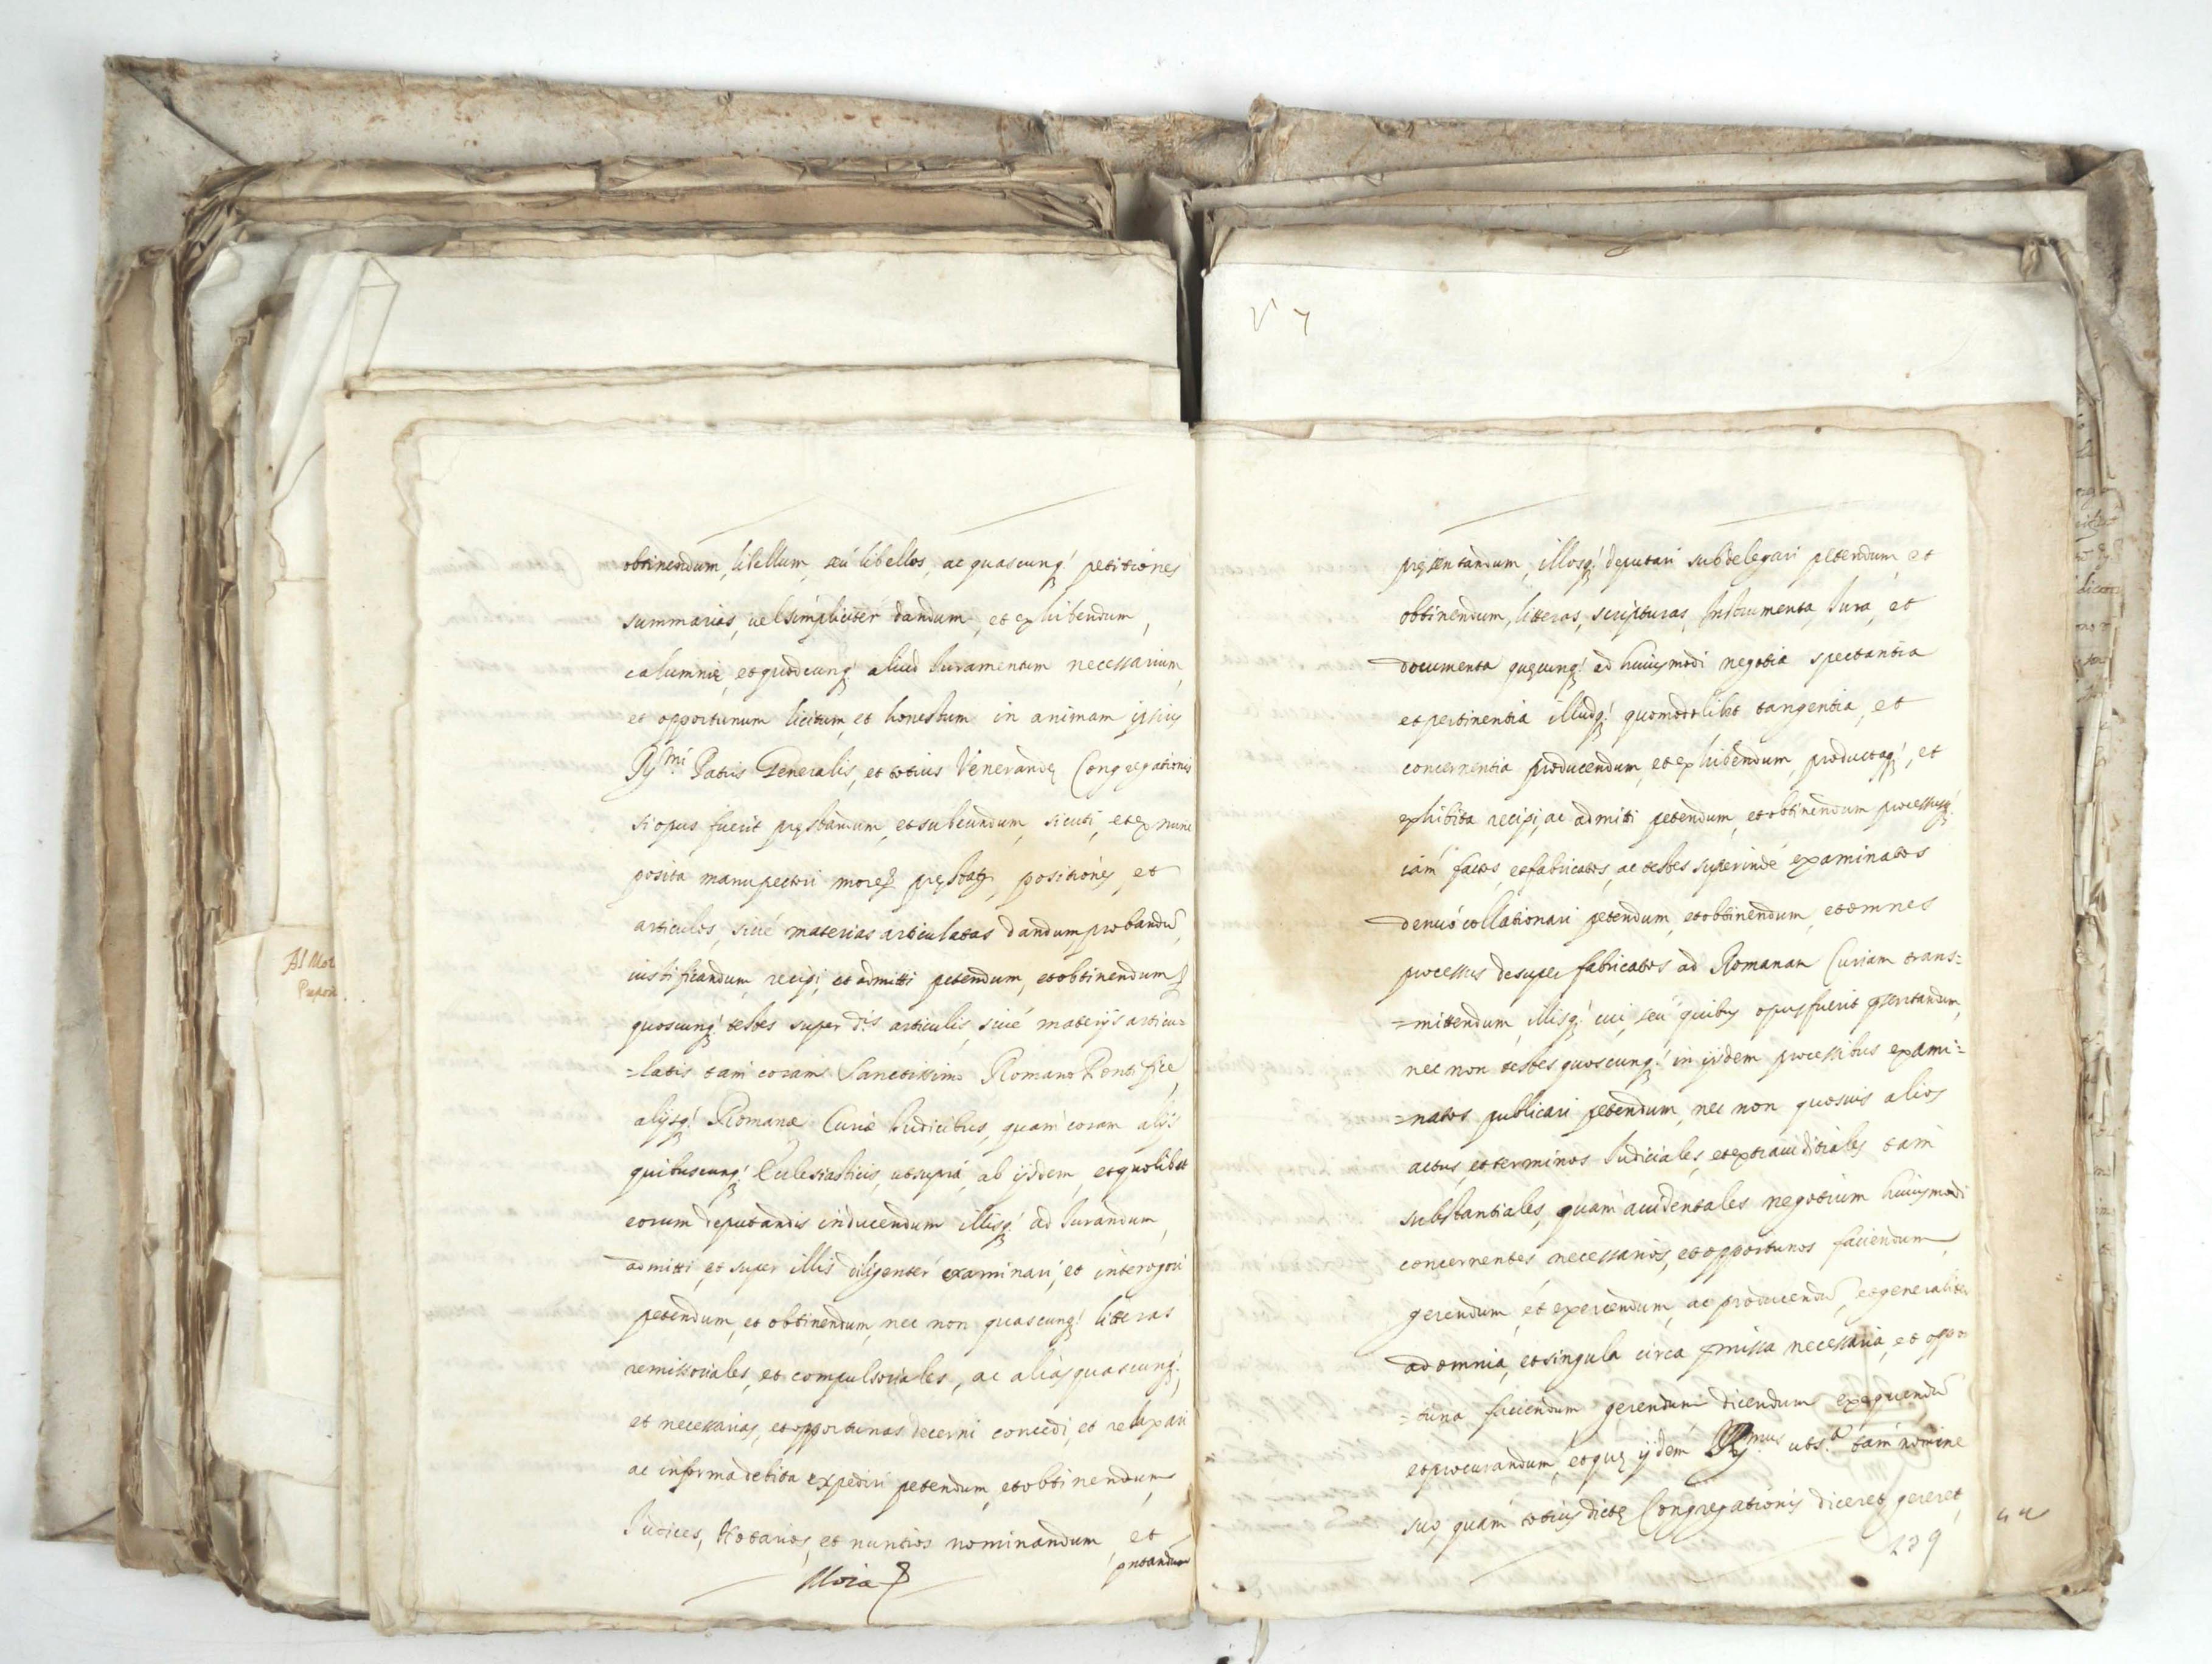 obtinendum, libellum, seú libellos, ac quascunq́ petitiones
summarias, uel simpliciter dandum, et exhibendum,
calumnię, et quodcunq́ aliud Iuramentum necessarium,
et opportunum licitum, et honestum in animam ipsius
Rṽmi Patris Generalis, et totius Venerandę Congregationis
si opus fuerit pręstandum, et subeundum, sicuti, et ex nunc
posita manu pectori more pręstat, positiones, et
articulos, siué materias articulatas dandum, probandũ,
iustificandum, recipi, et admitti petendum, et obtinendum
quoscunq́ testes super dis articulis, siué materijs articu=
=latis tam coram Sanctissimo Romano Pontifice,
alijsq́ Romanæ Curiæ Iudicibus, quam coram alijs
quibuscunq́ Ecclesiasticis, ut supra, ab ijsdem, et quolibet
eorum deputandis inducendum illisq́ ad Iurandum,
admitti, et super illis diligenter examinari, et interogari
petendum, et obtinendum, nec non quascunq́ litteras
remissoriales, et compulsoriales, ac alias quascunq́,
et necessarias, et opportunas decerni concedi, et relaxari
ac in forma debita expediri petendum, et obtinendum,
Iudices, Notarios, et nuntios nominandum, et
pntandum
Mora
pręsentandum, illosq́ deputari subdelegari petendum, et
obtinendum, litteras, scripturas, Instrumenta, Iura, et
documenta quęcunq́ ad huiusmodi negotia spectantia
et pertinentia illudq́ quomodolibet tangentia, et
concernentia producendum, et exhibendum, productaq́, et
exhibita recipi, ac admitti petendum, et obtinendum processusq́
iam factos, et fabricatos, ac testes superinde examinatos
denuó collationari petendum, et obtinendum, et omnes
processus desuper fabricatos ad Romanam Curiam trans=
=mittendum, illisq́ cui, seú quibus opus fuerit psentandum,
nec non testes quoscunq́ in ijsdem processibus exami=
=natos publicari petendum, nec non quosuis alios
actus, et terminos Iudiciales, et extraiudiciales tam
substantiales, quam accidentales negotium huiusmodi
concernentes necessarios, et opportunos faciendum,
gerendum, et exercendum, ac producendũ, et generaliter
ad omnia, et singula circa pmissa necessaria, et oppor
=tuna faciendum gerendum dicendum exequendũ
et procurandum, et quę ijdem Rṽmus uts.ᵃ tam nomine
suo, quam totius dictę Congregationis diceret, gereret,
239